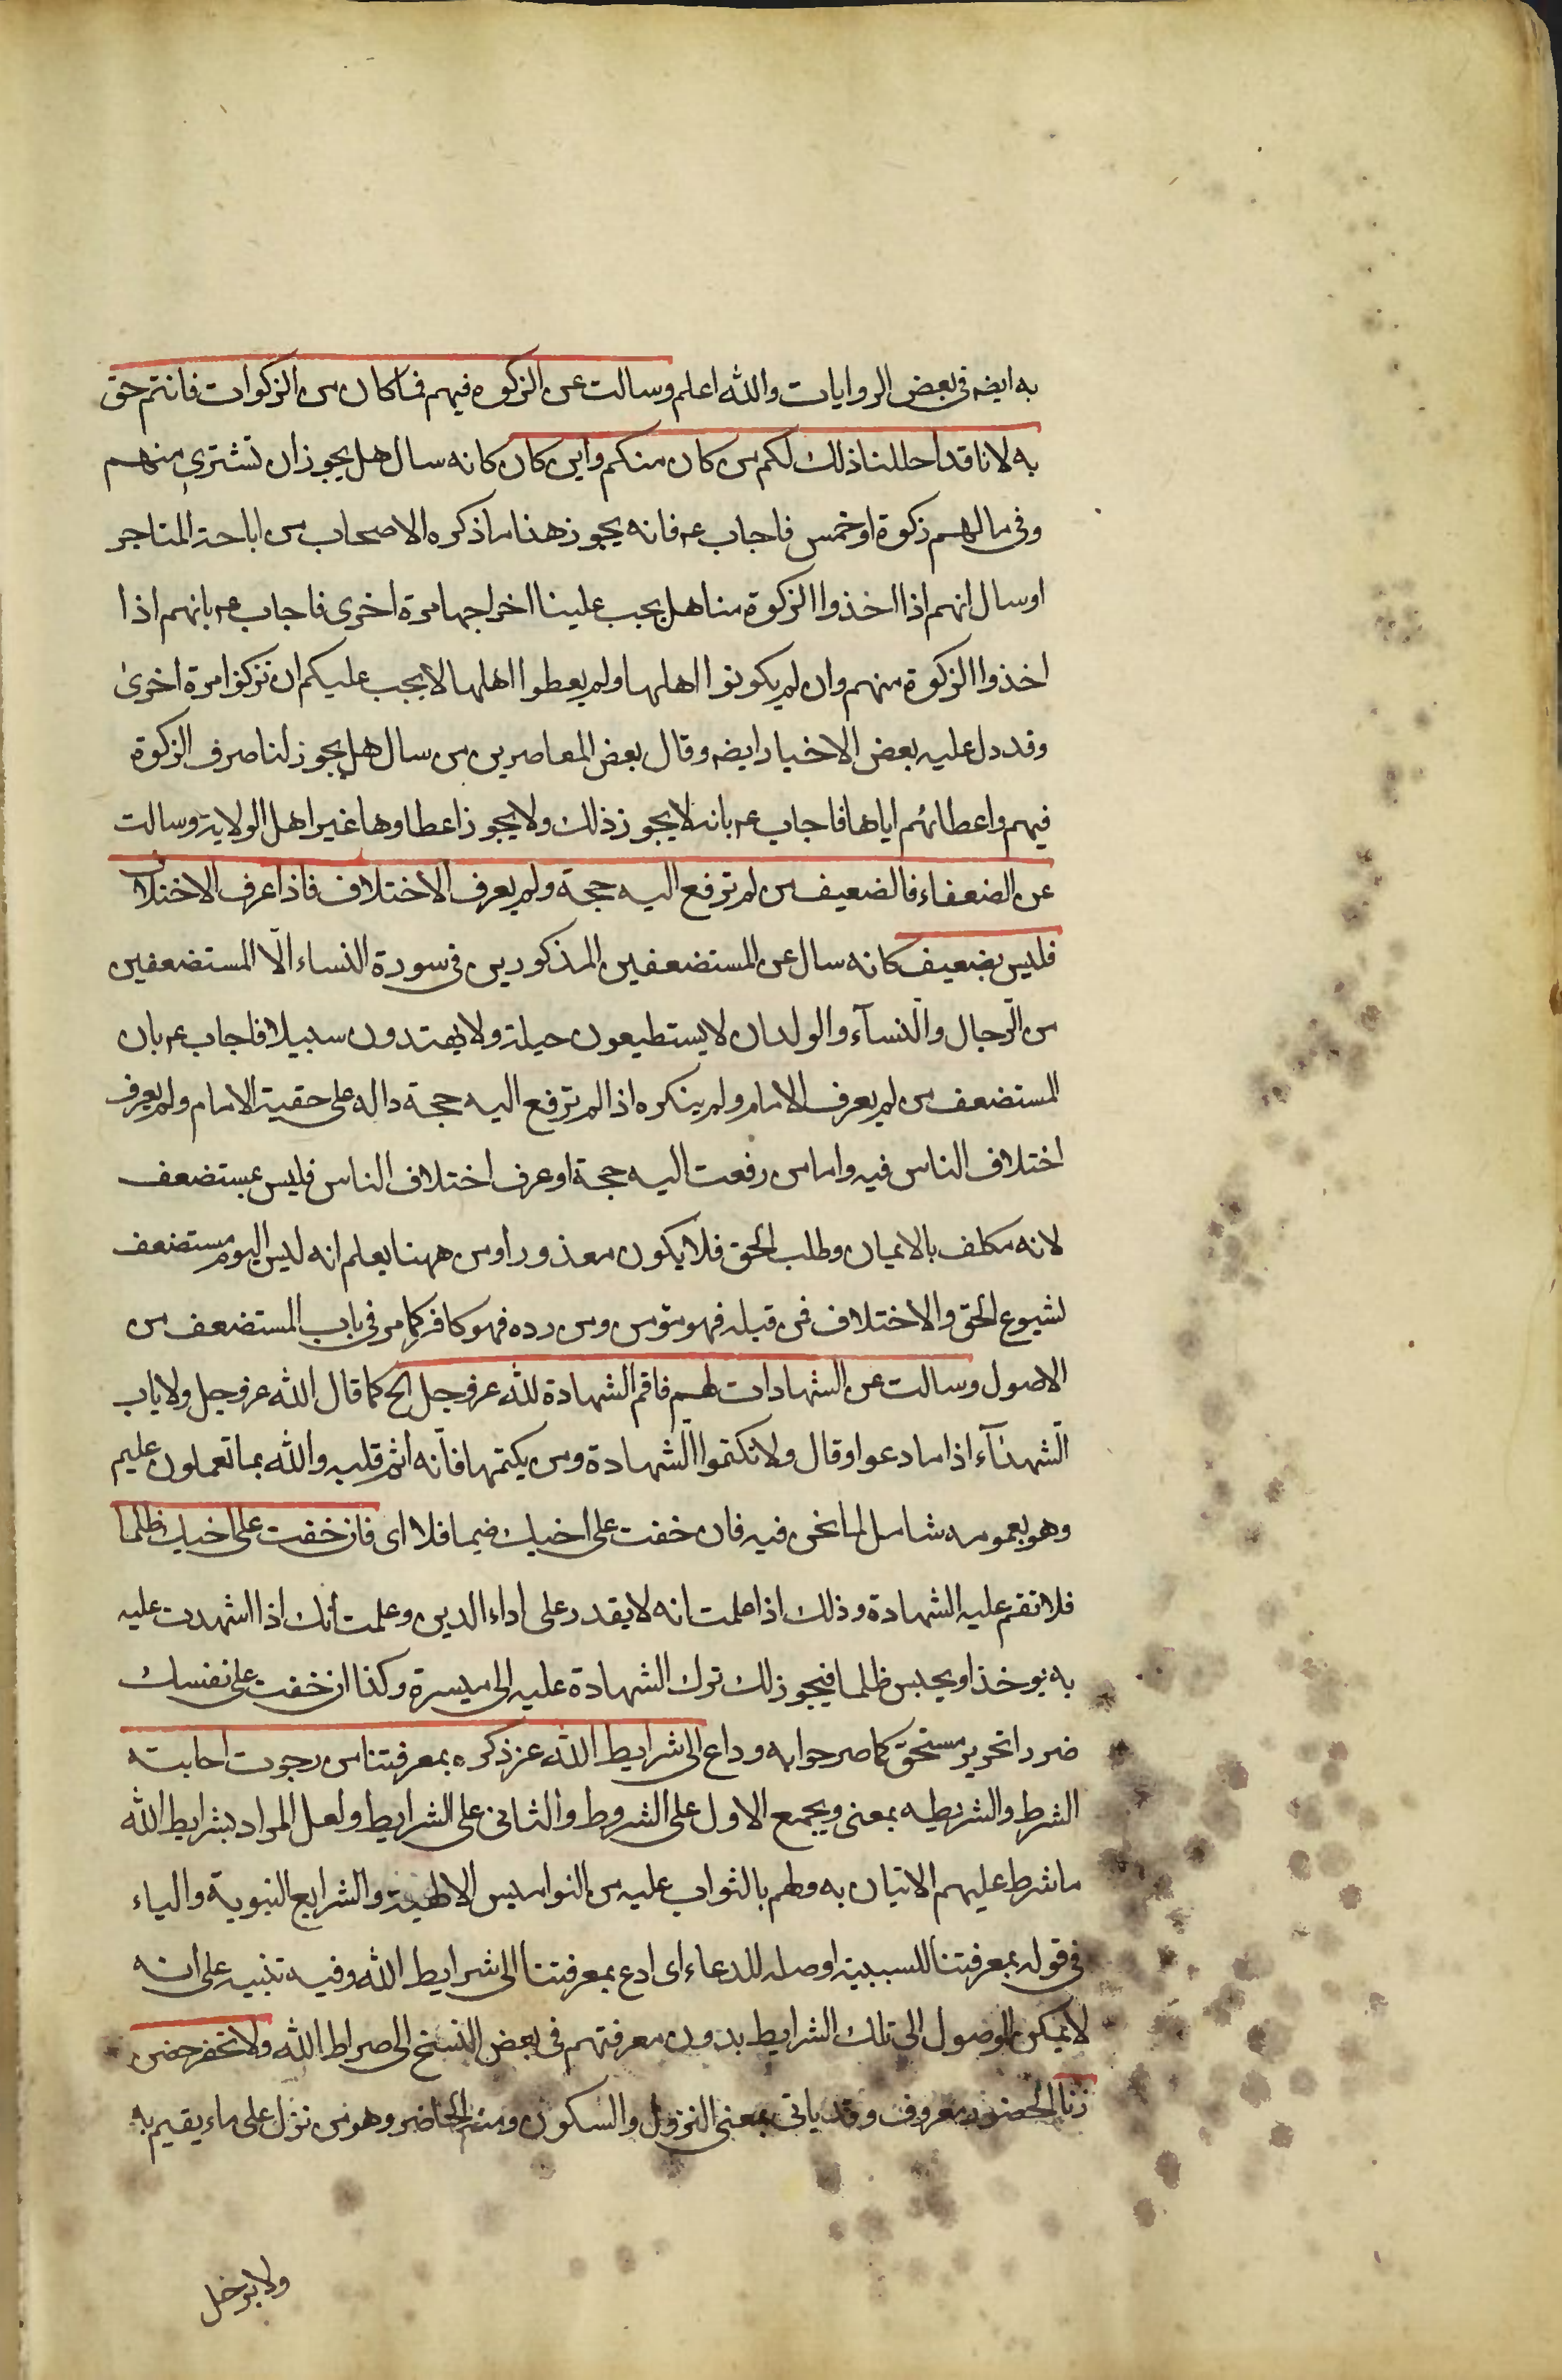 به ايضه فى بعض الروايات والله اعلم وسالت عن الزكوة فيهم فما كان من الزكوات فانتم حق
به لانا قد احللنا ذلك لكم من كان منكم واين كان كانه سال هل يجوز ان تشترى منهم
وفى مالهم زكوة او خمس فاجاب عم فانه يجوز هذا ما ذكره الاصحاب من اباحة المتاجر
او سال انهم اذا اخذوا الزكوة منا هل يجب علينا اخراجها مرة اخرى فاجاب عم بانهم اذا
اخذوا الزكوة منهم وان لم يكونوا اهلها ولم يعطوا اهلها لا يجب عليكم ان تزكوا مرة اخرى
وقد دل عليه بعض الاخبار ايضه وقال بعض المعاصرين من سال هل يجوز لنا صرف الزكوة
فيهم واعطائهم اياها فاجاب عم بانه لا يجوز ذلك ولا يجوز اعطاوها غير اهل الولاية وسالت
عن الضعفاء فالضعيف من لم ترفع اليه حجة ولم يعرف الاختلاف فاذا عرف الاختلاف
فليس بضعيف كانه سال عن المستضعفين المذكورين فى سورة النساء الّا المستضعفين
من الرّجال والنّسآء والولدان لا يستطيعون حيلة ولا يهتدون سبيلا فاجاب عم بان
المستضعف من لم يعرف الامام ولم ينكره اذا لم ترفع اليه حجة داله على حقية الامام ولم يعرف
اختلاف الناس فيه واما من رفعت اليه حجة او عرف اختلاف الناس فليس بمستضعف
لانه مكلف بالايمان وطلب الحق فلا يكون معذورا ومن ههنا يعلم انه ليس اليوم مستضعف
لشيوع الحق والاختلاف فمن قبله فهو مؤمن ومن رده فهو كافر كما مر فى باب المستضعف من
الاصول وسالت عن الشهادات لهم فاقم الشهادة لله عز وجل الخ كما قال الله عز وجل ولا ياب
الشّهدآء اذا ما دعوا وقال ولا تكتموا الشّهادة ومن يكتمها فانّه اثم قلبه والله بما تعملون عليم
وهو بعمومه شامل لما نحن فيه فان خفت على اخيك ضيما فلا اى فان خفت على اخيك ظلما
فلا تقم عليه الشهادة وذلك اذا علمت انه لا يقدر على اداء الدين وعلمت انك اذا اشهدت عليه
به يوخذ او يحبس ظلما فيجوز لك ترك الشهادة عليه الى ميسرة وكذا ان خفت على نفسك
ضررا غير مستحق كما صرحوا به وداع الى شرايط الله عز ذكره بمعرفتنا من رجوت اجابته
الشرط والشريطه بمعنى ويجمع الاول على الشروط والثانى على الشرايط ولعل المراد بشرايط الله
ما شرط عليهم الاتيان به ولهم بالثواب عليه من النواميس الالهية والشرايع النبوية والباء
فى قوله بمعرفتنا للسببية او صله للدعاء اى ادع بمعرفتنا الى شرايط الله وفيه تنبيه على انه
لا يمكن الوصول الى تلك الشرايط بدون معرفتهم فى بعض النسخ الى صراط الله ولا تحضر حصن
زنا الحضور معروف وقد ياتى بمعنى النزول والسكون ومنه الحاضر وهو من نزل على ماء يقيم به
ولا يرحل